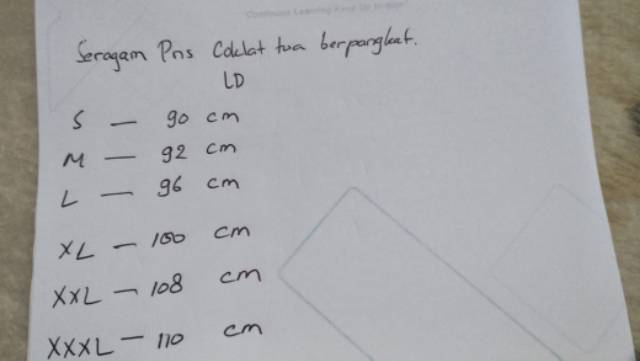 Continuous Learning
Seragam Pns Coklat tua berpangkat.
LD
S — 90 cm
M — 92 cm
L — 96 cm
XL — 100 cm
XXL — 108 cm
XXXL — 110 cm